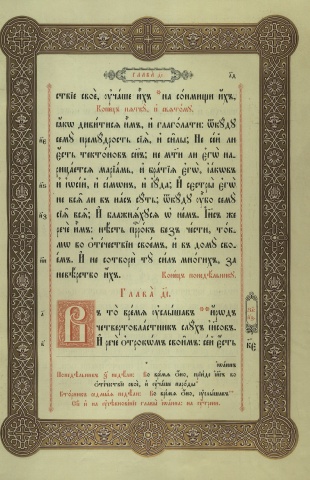 ГЛАВА д҃і
ствїе своѐ, ᲂу҆ча́ше и҆̀хъ на со́нмищи и҆́хъ,
Коне́цъ пѧткꙋ̀, и҆ свѧто́мꙋ.
ꙗ҆́кѡ диви́тисѧ и҆̀мъ, и҆ глаго́лати: ѿкꙋ́дꙋ
семꙋ̀ премꙋ́дрость сїѧ̀, и҆ си̑лы; Не се́й ли
є҆́сть тектѡ́новъ сн҃ъ; не мт҃и ли є҆гѡ̀ на-
рица́етсѧ марїа́мь, и҆ бра́тїѧ є҆гѡ̀, і҆а́кѡвъ
и҆ і҆ѡсі́й, и҆ сі́мѡнъ, и҆ і҆ꙋ́да; И҆ сєстры̀ є҆гѡ̀
не всѧ̑ ли въ на́съ сꙋ́ть; ѿкꙋ́дꙋ ᲂу҆̀бо семꙋ̀
сїѧ̑ всѧ̑; И҆ блажнѧ́хꙋсѧ ѡ҆ не́мъ. І҆и҃съ же
речѐ и҆̀мъ: нѣ́сть прⷪ҇ро́къ без̾ че́сти, то́к-
мѡ во ѻ҆те́чествїи свое́мъ, и҆ въ домꙋ̀ сво-
е́мъ. И҆ не сотворѝ тꙋ̀ си́лъ мно́гихъ, за
невѣ́рство и҆́хъ.
Коне́цъ понедѣ́льникꙋ.
ГЛАВА̀ д҃і.
Въ то̀ вре́мѧ ᲂу҆слы́шавъ и҆́рѡдъ
четвертовла́стникъ слꙋ́хъ і҆и҃совъ.
И҆ речѐ ѻ҆трокѡ́мъ свои̑мъ: се́й є҆́сть
і҆ѡа́ннъ
Понедѣ́льникъ з҃ недѣ́ли: Во вре́мѧ ѻ҆́но, прїи́де і҆и҃съ во
ѻ҆те́чествїе своѐ, и҆ ᲂу҆ча́ше наро́ды
Вто́рникъ седмы́ѧ недѣ́ли: Во вре́мѧ ѻ҆́но, ᲂу҆слы́шавъ